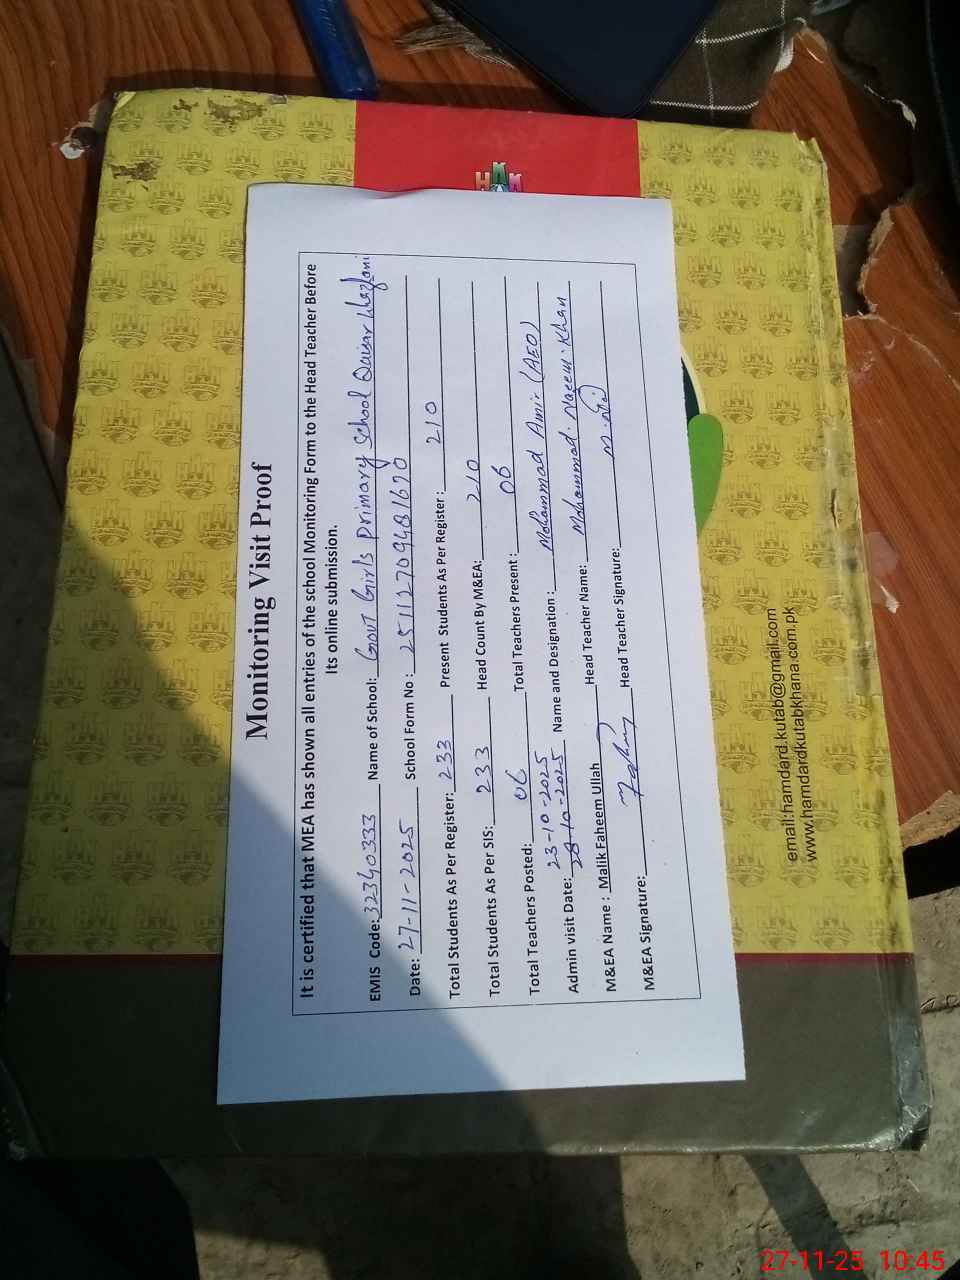 HAK
Monitoring Visit Proof
It is certified that MEA has shown all entries of the school Monitoring Form to the Head Teacher Before
Its online submission.
EMIS Code: 32340333 Name of School: Govt Girls primary school Qaisar Ghazlani
Date: 27-11-2025 School Form No : 25112709481670
Total Students As Per Register: 233 Present Students As Per Register : 210
Total Students As Per SIS: 233 Head Count By M&EA: 210
Total Teachers Posted: 06 Total Teachers Present : 06
23-10-2025
Admin visit Date: 28-10-2025 Name and Designation : Mohammad Amir (AEO)
M&EA Name : Malik Faheem Ullah Head Teacher Name: Mohammad Nazeem Khan
M&EA Signature: Head Teacher Signature:
email:hamdard.kutab@gmail.com
www.hamdardkutabkhana.com.pk
27-11-25 10:45